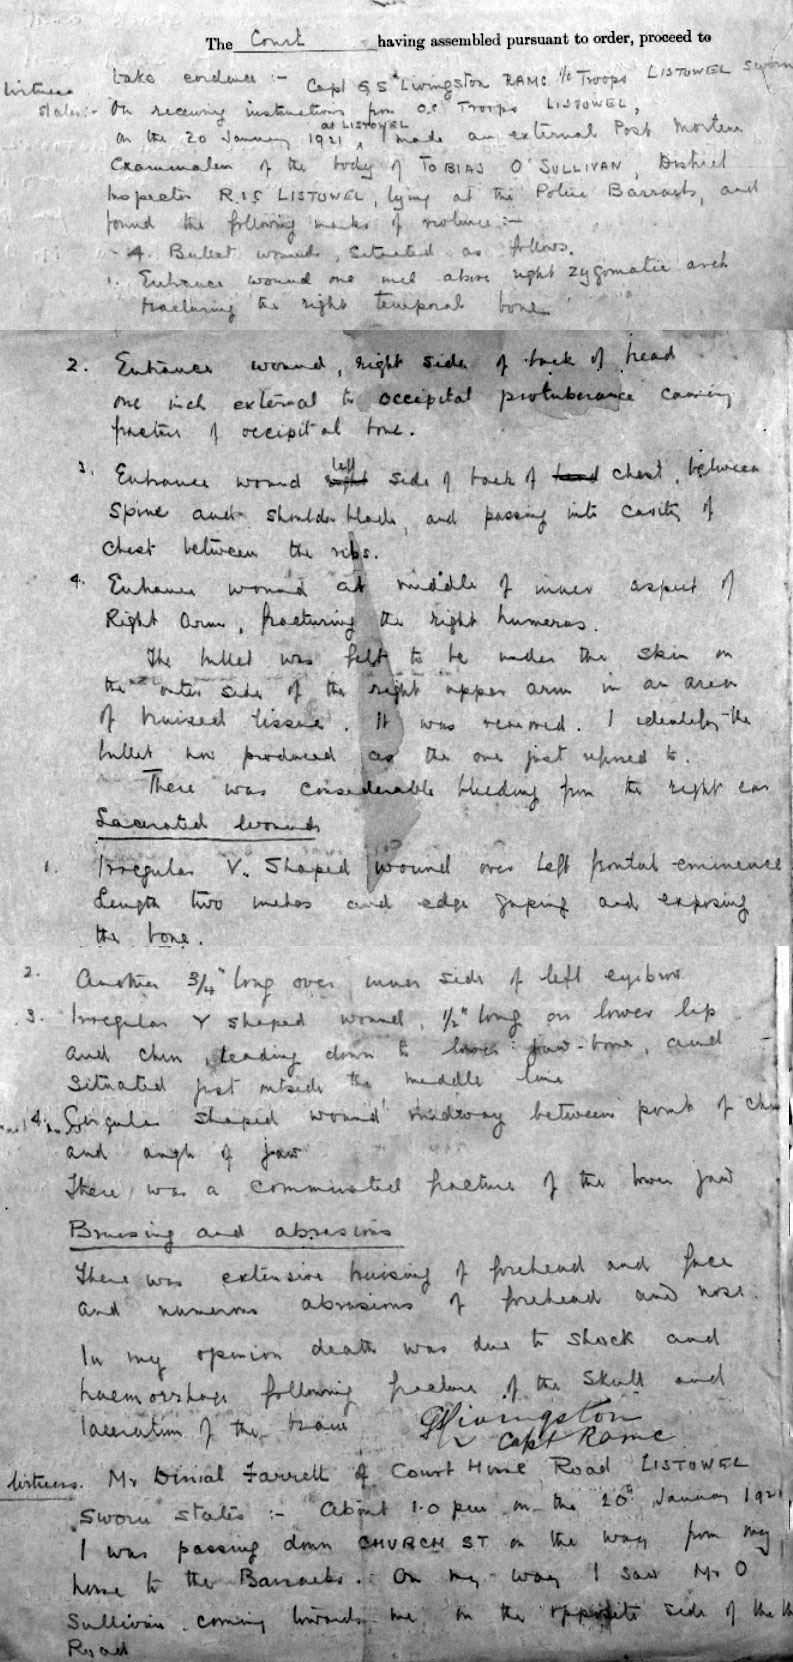 The Court having assembled pursuant to order, proceed to
take evidence :- Capt G S Livingston RAMC i/c Troops LISTOWEL sworn
Witness
states :- On receiving instructions from O.C Troops LISTOWEL,
on the 20 January 1921 at LISTOWEL, I made an external Post Mortem
Examination of the body of TOBIAS O'SULLIVAN, District
Inspector R.I.C LISTOWEL, lying at the Police Barracks, and
found the following marks of violence :-
4. Bullet wounds, situated as follows.
1. Entrance wound one inch above right zygomatic arch
fracturing the right temporal bone
2. Entrance wound, right side of back of head
one inch external to occipital protuberance causing
fracture of occipital bone.
3. Entrance wound right left side of back of head chest, between
spine and shoulder blade, and passing into cavity of
chest between the ribs.
4. Entrance wound at middle of inner aspect of
Right Arm, fracturing the right humerus.
The bullet was felt to be under the skin on
the outer side of the right upper arm in an area
of bruised tissue. It was removed. I identify the
bullet now produced as the one just referred to.
There was considerable bleeding from the right ear
Lacerated Wounds
1. Irregular V. Shaped wound over left frontal eminence
Length two inches and edge gaping and exposing
the bone.
2. Another 3/4" long over inner side of left eyebrow
3. Irregular Y shaped wound, 1/2" long on lower lip
and chin, leading down to lower jaw-bone, and
situated just outside the middle line
4. shaped wound midway between point of chin
and angle of jaw
There was a comminuted fracture of the lower jaw
Bruising and abrasions
There was extensive bruising of forehead and face
and numerous abrasions of forehead and nose.
In my opinion death was due to shock and
haemorrhage following fracture of the skull and
laceration of the brain
GS Livingston
Capt RAMC
Witness. Mr Dinial Farrell of Court House Road LISTOWEL
sworn states :- About 1.0 pm on the 20th January 1921
I was passing down CHURCH ST on the way from my
home to the Barracks. On my way I saw Mr O
Sullivan coming towards me on the opposite side of the
Road